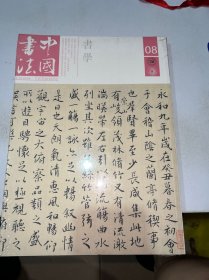 中國
書法
書學
08
永和九年歲在癸丑暮春之初會
于會稽山陰之蘭亭脩禊事
也群賢畢至少長咸集此地
有崇領茂林脩竹又有清流激
湍暎帶左右引以為流觴曲水
列坐其次雖無絲竹管弦之
盛一觴一詠亦足以暢敘幽情
是日也天朗氣清惠風和暢仰
觀宇宙之大俯察品類之盛
所以遊目騁懷足以極視聽之